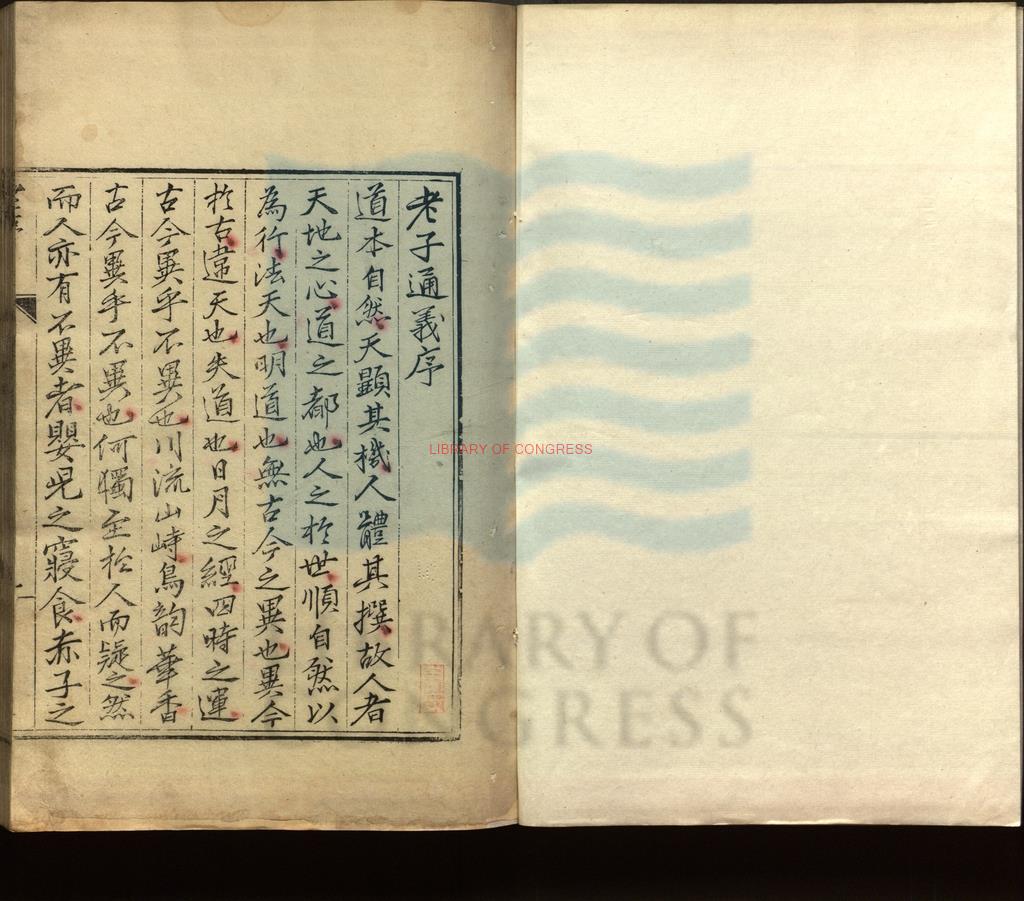 老子通義序
道本自然天顯其機人體其撰故人者
天地之心道之都也人之於世順自然以
為行法天也明道也無古今之異也異今
於古違天也失道也日月之經四時之運
古今異乎不異也川流山峙鳥韵華香
古今異乎不異也何獨至於人而疑之然
而人亦有不異者嬰児之寢食赤子之
LIBRARY OF CONGRESS